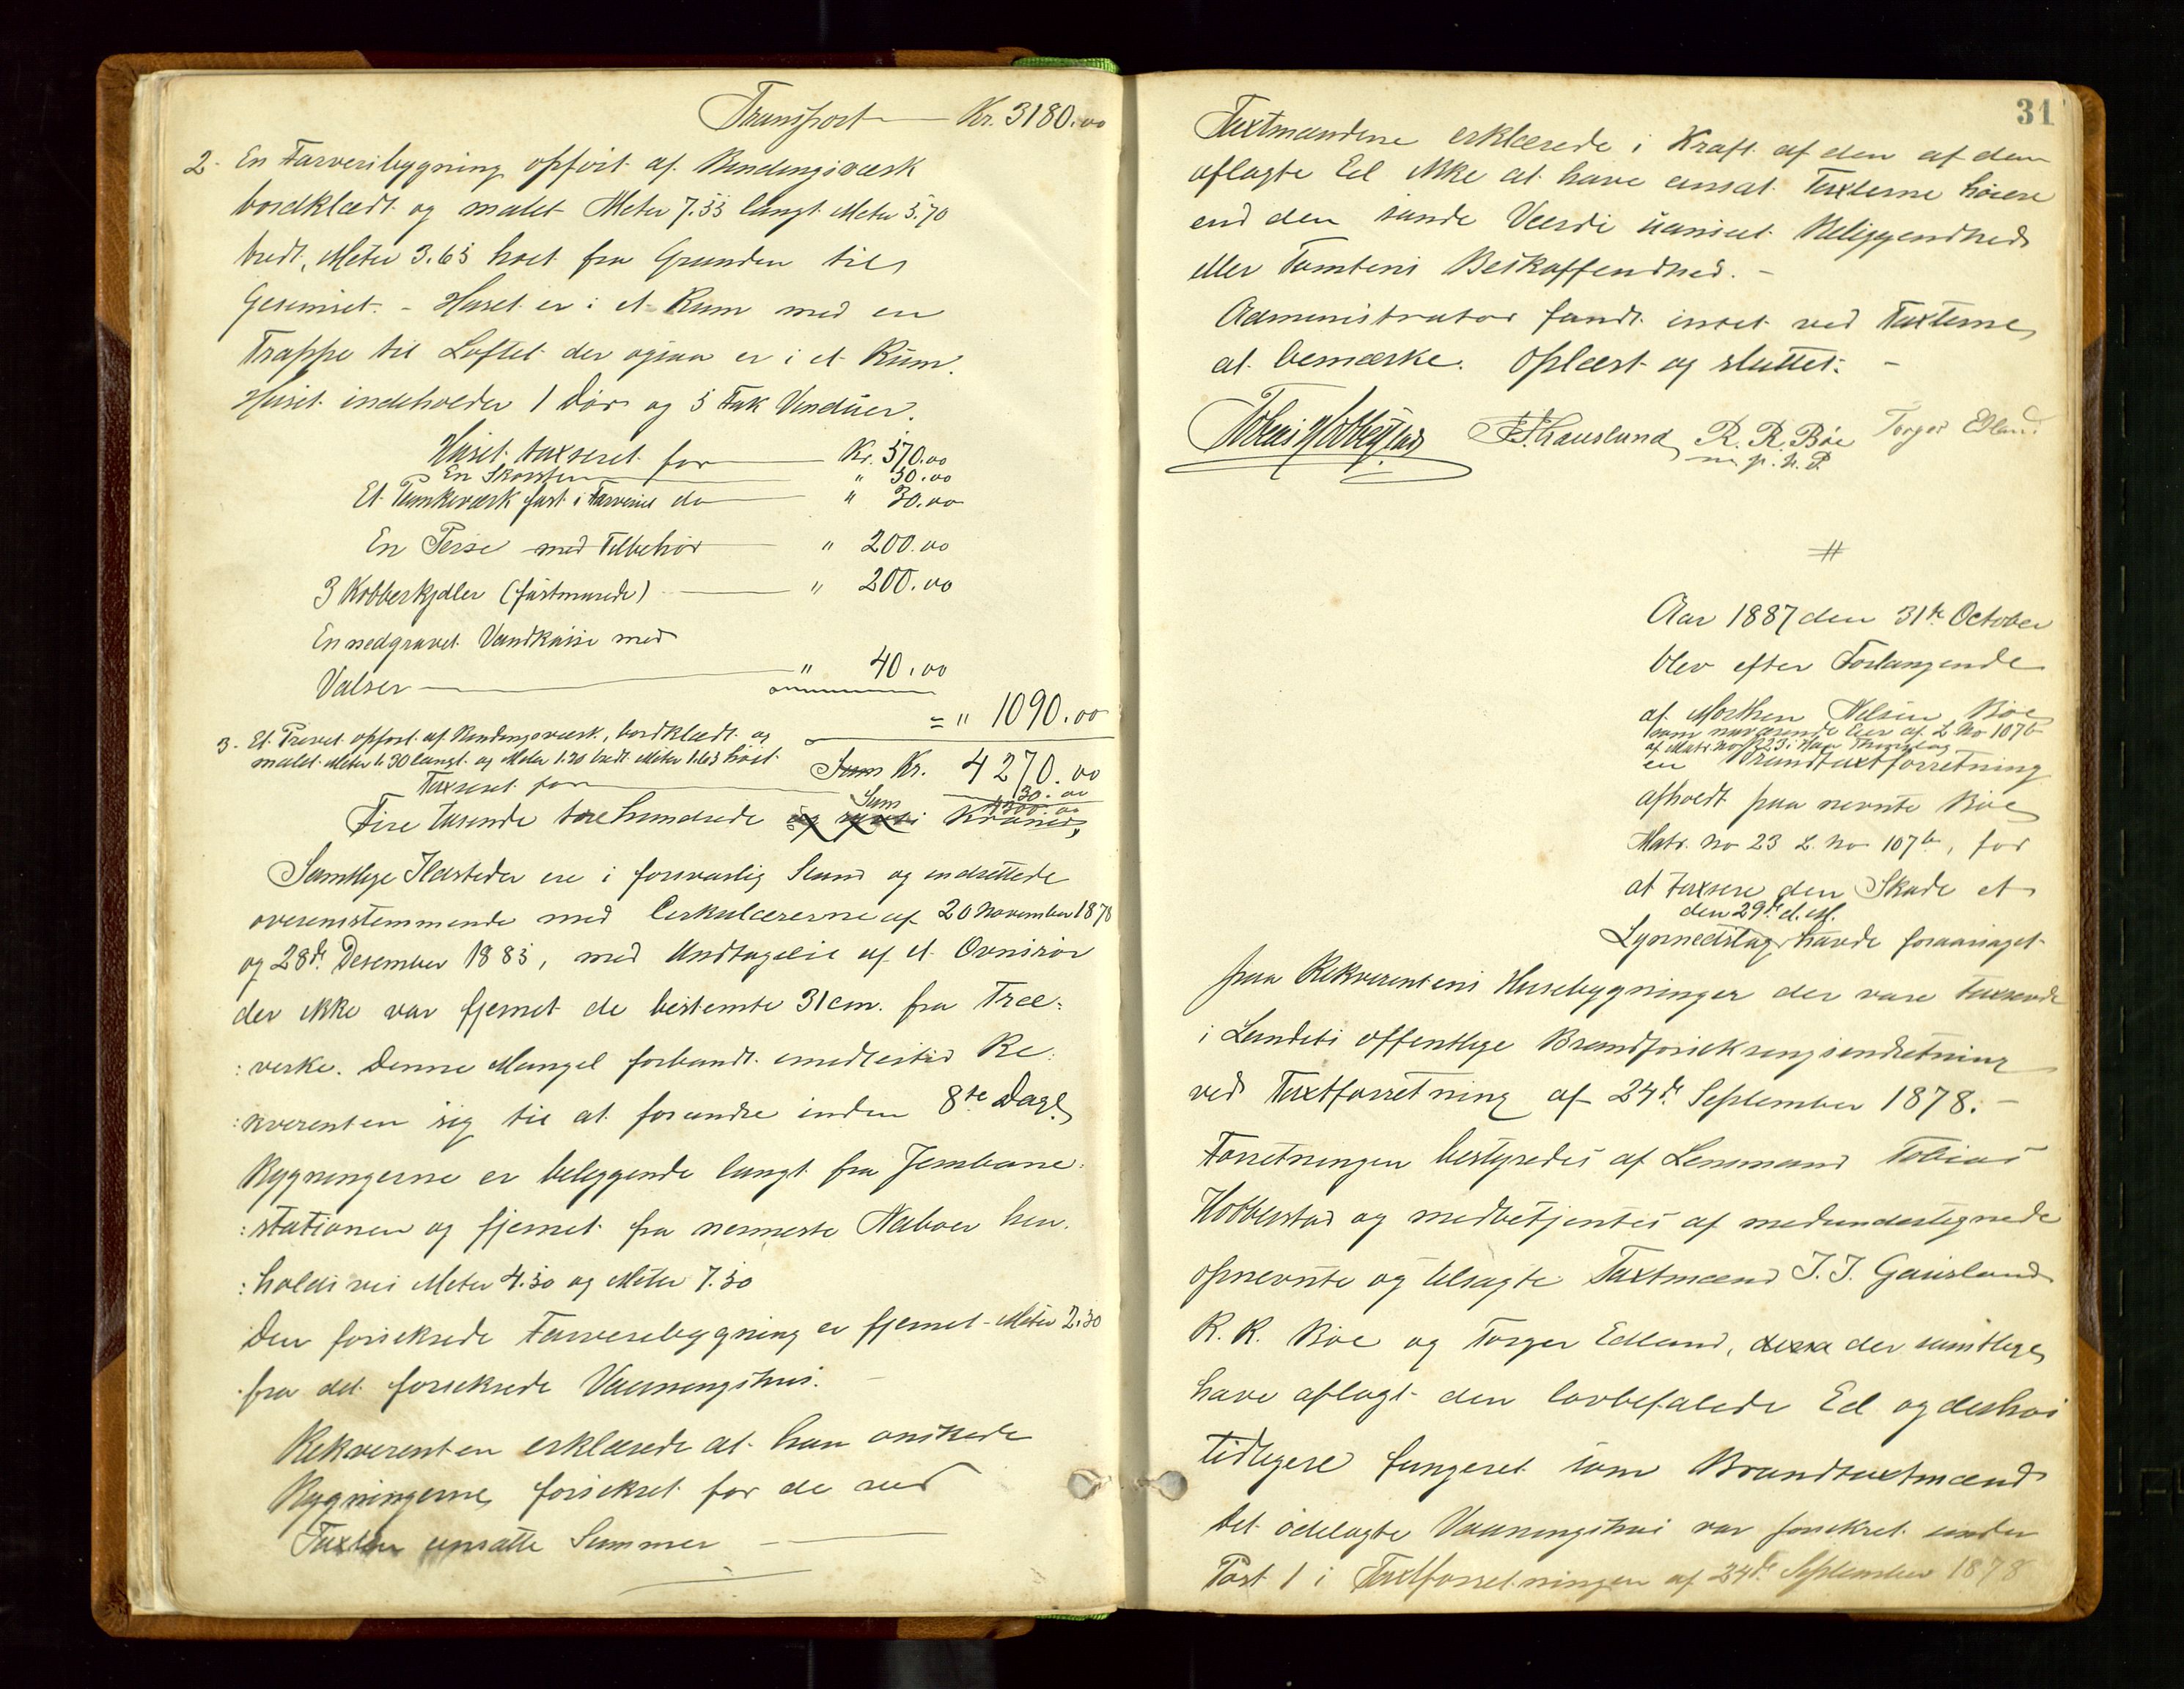 Transport — Kr. 3180.00
2. En Farveribygning opført af Bindingsværk
bordklædt og malet Meter 7.55 langt Meter 5.70
bredt, Meter 3.65 høit fra Grunden til
Gesimset. - Huset er i et Rum med en
Trappe til Loftet der ogsaa er i et Rum.
Huset indeholder 1 Dør og 5 Fak Vinduer.
Huset taxseret for — Kr. 570.00
En Skorsten — " 50.00
Et Tankeværk fast i Farveriet do — " 30.00
En Perse med Tilbehør — " 200.00
3 Kobberkjdler (fastmurede) — " 200.00
En nedgravet Vandkasse med
Valser — " 40.00
= " 1090.00
3. Et Privet opført af Bindingsværk, bordklædt og
malet Meter 1.30 langt og Meter 1.30 bredt Meter 1.63 høit
Sum Kr. 4270.00
Taxseret for — 30.00
Sum 4300.00
Fire tusende tre hundrede og sytti Kroner,
Samtlige Ildsteder ere i forsvarlig Stand og indrettede
overensstemmende med Cirkulærerne af 20 November 1878
og 28de Desember 1885, med Undtagelse af et Ovnsrør
der ikke var fjernet de bestemte 31 cm. fra Træ:
:verke. Denne Mangel forbandt imidlertid Re:
:kverenten sig til at forandre inden 8te Dage,
Bygningerne er beliggende langt fra Jernbane:
:stationen og fjernet fra nermeste Naboer hen:
:holdsvis Meter 4.50 og Meter 7.50
Den forsikrede Farveribygning er fjernet Meter 2.30
fra det forsikrede Vaaningshus. —
Rekverenten erklærede at han ønskede
Bygningerne forsikret for de ved
Taxten ansatte Summer —
31
Taxtmændene erklærede i Kraft af den af dem
aflagte Ed ikke at have ansat Taxterne høiere
end den sande Værdi uanseet Beliggendhed
eller Tomtens Beskaffendhed. -
Administrator fandt intet ved Taxterne
at bemærke. Oplæst og sluttet. -
Tobias Hobberstad J. J. Gausland R. R. Bøe Torger Edland
m. p. u. P.
#
Aar 1887 den 31te October
blev efter Forlangende
af Morthen Nelsen Bøe
som nuværende Eier af L No 107b
af Matr. No 23 i Haa Thinglag
en Brandtaxtforretning
afholdt paa nevnte Bøe
Matr. No 23 L. No 107b, for
at taxsere den Skade et
den 29de d. M.
Lynnedslag havde foraarsaget
paa Rekverentens Husebygninger der vare taxserede
i Landets offentlige Brandforsikringsindretning
ved Taxtforretning af 24de September 1878. -
Forretningen bestyredes af Lensmand Tobias
Hobberstad og medbetjentes af medundertegnede
opnevnte og tilsagte Taxtmænd J. J. Gausland
R. R. Bøe og Torger Edland, der samtlige
have aflagt den lovbefalede Ed og deshos
tidligere fungeret som Brandtaxtmænd
Det ødelagte Vaaningshus var forsikret under
Post 1 i Taxtforretningen af 24de September 1878